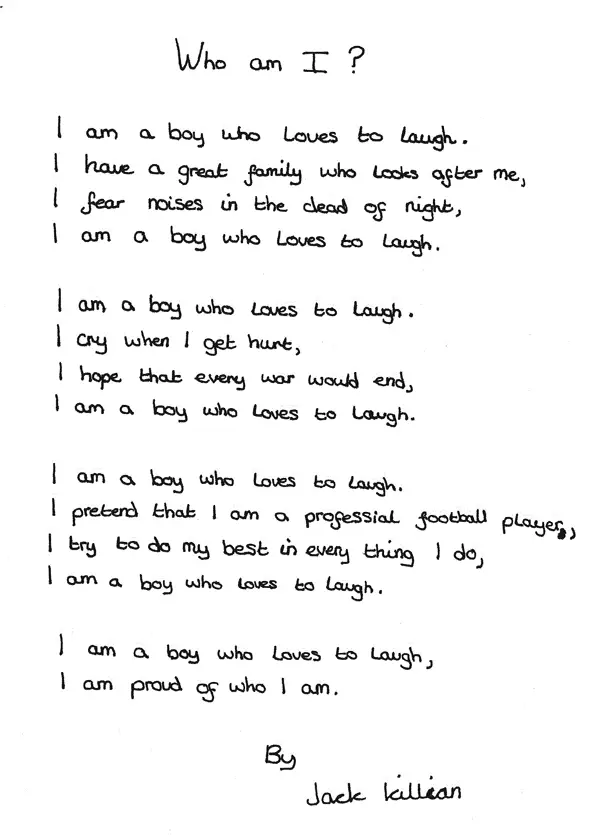 Who am I ?
I am a boy who loves to laugh.
I have a great family who looks after me,
I fear noises in the dead of night,
I am a boy who loves to laugh.
I am a boy who loves to laugh.
I cry when I get hurt,
I hope that every war would end,
I am a boy who loves to laugh.
I am a boy who loves to laugh.
I pretend that I am a professial football player,
I try to do my best in every thing I do,
I am a boy who loves to laugh.
I am a boy who loves to laugh,
I am proud of who I am.
By
Jack Killian